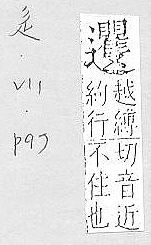 辵．VII．P95
越縛切音近
約行不住也